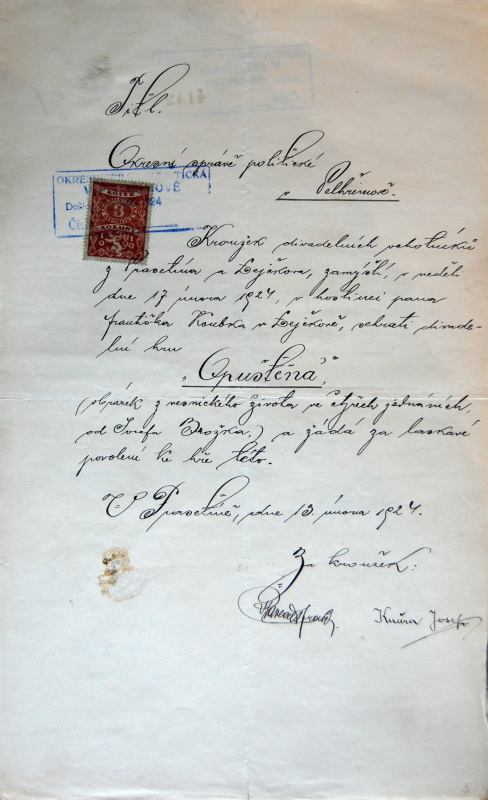 Titl.
Okresní správě politické
v Pelhřimově.
OKRES TICKÁ
V OVĚ
24
KOLEK
3
KORUNY
Kroužek divadelních ochotníků
z Prosetína a Lejčkova, zamýšlí, v neděli
dne 17 února 1924, v hostinci pana
Františka Koubka v Lejčkově, sehrati divade-
lní hru
"Opuštěná",
(obrázek z vesnického života ve čtyřech jednáních,
od Josefa Brožka.) a žádá za laskavé
povolení ke hře této.
V Prosetíně, dne 13. února 1924.
Za kroužek:
Josef